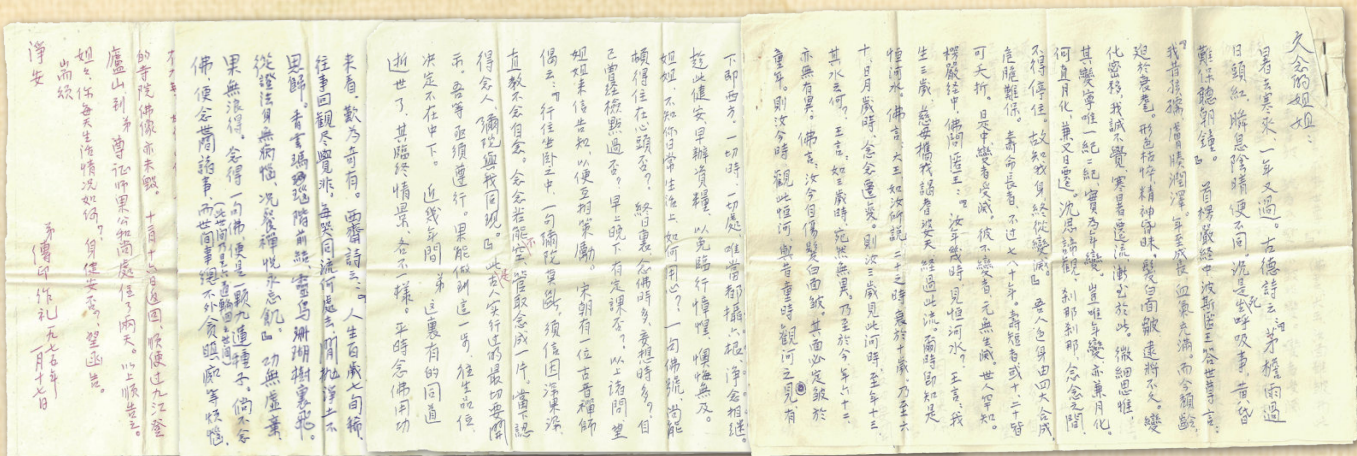 久念的姐姐:
暑去寒來,一年又過。古德詩云:茅檐雨過
日頭紅,瞬息陰晴便不同。況是出呼吸事,黃昏
難保聽朝鐘。首楞嚴經中波斯匿王答世尊言:
我昔孩孺膚腠潤澤,年至成長血氣充滿,而今頹齡
迫於衰耄,形色枯悴精神昏昧,髮白面皺逮將不久。變
化密移,我誠不覺,寒暑遷流漸至於此。微細思惟,
其變寧唯一紀二紀,實為年變,豈唯年變亦兼月化,
何直月化兼又日遷。沈思諦觀,剎那剎那,念念之間,
不得停住。故知我身,終從變滅。吾人色身由四大合成,
危脆難保。壽命長者,不过七八十年,壽短者或十、二十皆
可夭折。是中變者受滅,彼不變者元無生滅。世人罕知。
楞嚴經中,佛問匿王:汝年幾時見恒河水?王言:我
生三歲慈母攜我謁耆婆天,經過此流,爾時即知是
恒河水。佛言,大王如汝所說,二十之時衰於十歲,乃至六
十,日月歲時,念念遷變。則汝三歲見此河時,至年十三
其水云何?王言:如三歲時宛然無異,乃至於今年六十二
亦無有異。佛言,汝今自傷髮白面皺,其面必定皺於
童年。則汝今時觀此恒河與昔童時觀河之見有
下即西方。一切時一切處唯當都攝六根,淨念相繼。
趁此健安,早辦資糧,以免臨行慞惶,懊悔無及。
姐姐,不知你日常生活上如何用心?一句佛號,尚能
頓得住在心頭否?終日裏念佛時多,妄想時多?自
己曾檢點過否?早上晚下有定課否?以上諸問,望
姐姐來信告知,以便互相策勵。宋朝有一位古音禪師
偈云:『行住坐臥之中,一句彌陀莫斷,須信因深果深,
直教不念自念。念念若能不空,管取念成一片,當下認
得念人,彌陀與我同現。』此古人实行过的最切要開
示,吾等亟須遵行。果能做到這一步,往生品位
決定不在中下。近幾年間,弟這裏有的同道
逝世了,其臨終情景,各不一樣。平時念佛用功
來看,歎為奇有。西齋詩云:『人生百歲七旬稀,
往事回觀尽覺非。每哭同流何處去,閒拋淨土不
思歸。香雲瑪瑙階前結,靈鳥珊瑚樹裏飛。
從證法身無病惱,況餐禪悅永忘飢。』功無虛棄,
果無浪得。念得一句佛,便是一顆九蓮種子。倘不念
佛,便念世間諸事,而世間事總不外貪瞋癡等煩惱,
的寺院佛像亦未毀。十月十六日返回,順便过九江登
廬山到弟尊證师果公和尚處住了兩天。以上順告之。
姐姐,你每天生活情况如何?身健安否?望函告。
耑頌
淨安
弟傳印作礼 一九七五年
一月十七日